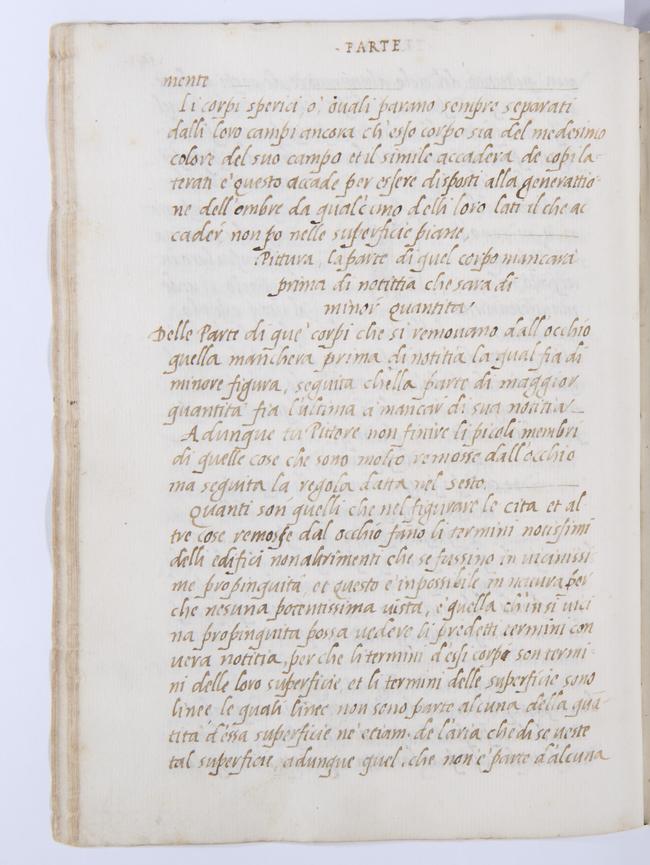 - PARTE
mente
Li corpi sperici, o, ouali parano sempre separati
dalli loro campi ancora ch'esso corpo sia del medesimo
colore del suo campo et il simile accadera de copi la-
terati e questo accade per essere disposti alla generattio-
ne dell'ombre da qualc'uno delli loro lati il che ac
cader non po nelle superficie piane.
Pittura, la parte di quel corpo mancara
prima di notittia che sara di
minor quantita
Delle Parte di que corpi che si removano dall occhio
quella manchera prima di notitia la qual fia di
minore figura, seguita ch'ella parte di maggior
quantita fia l'ultima a mancar di sua notitia
Adunque tu Pittore non finire li picoli membri
di quelle cose che sono molto remosse dall'occhio
ma seguita la regola datta nel sesto.
Quanti son quelli che nel figurare le cita et al
tre cose remosse dal occhio fano li termini notissimi
delli edifici non altrimenti che se fussino in vicinissi
me propinquità, et questo e inpossibile in natura per
che nesuna potentissima vista, e quella ch'in si vici
na propinquita possa vedere li predetti termini con
vera notitia, per che li termini d'essi corpi son termi-
ni delle loro superficie, et li termini delle superficie sono
linee le quali linee non sono parte alcuna della quã-
tita d'essa superficie ne etiam de l'aria che di se veste
tal superficie, adunque quel, che non e parte d'alcuna